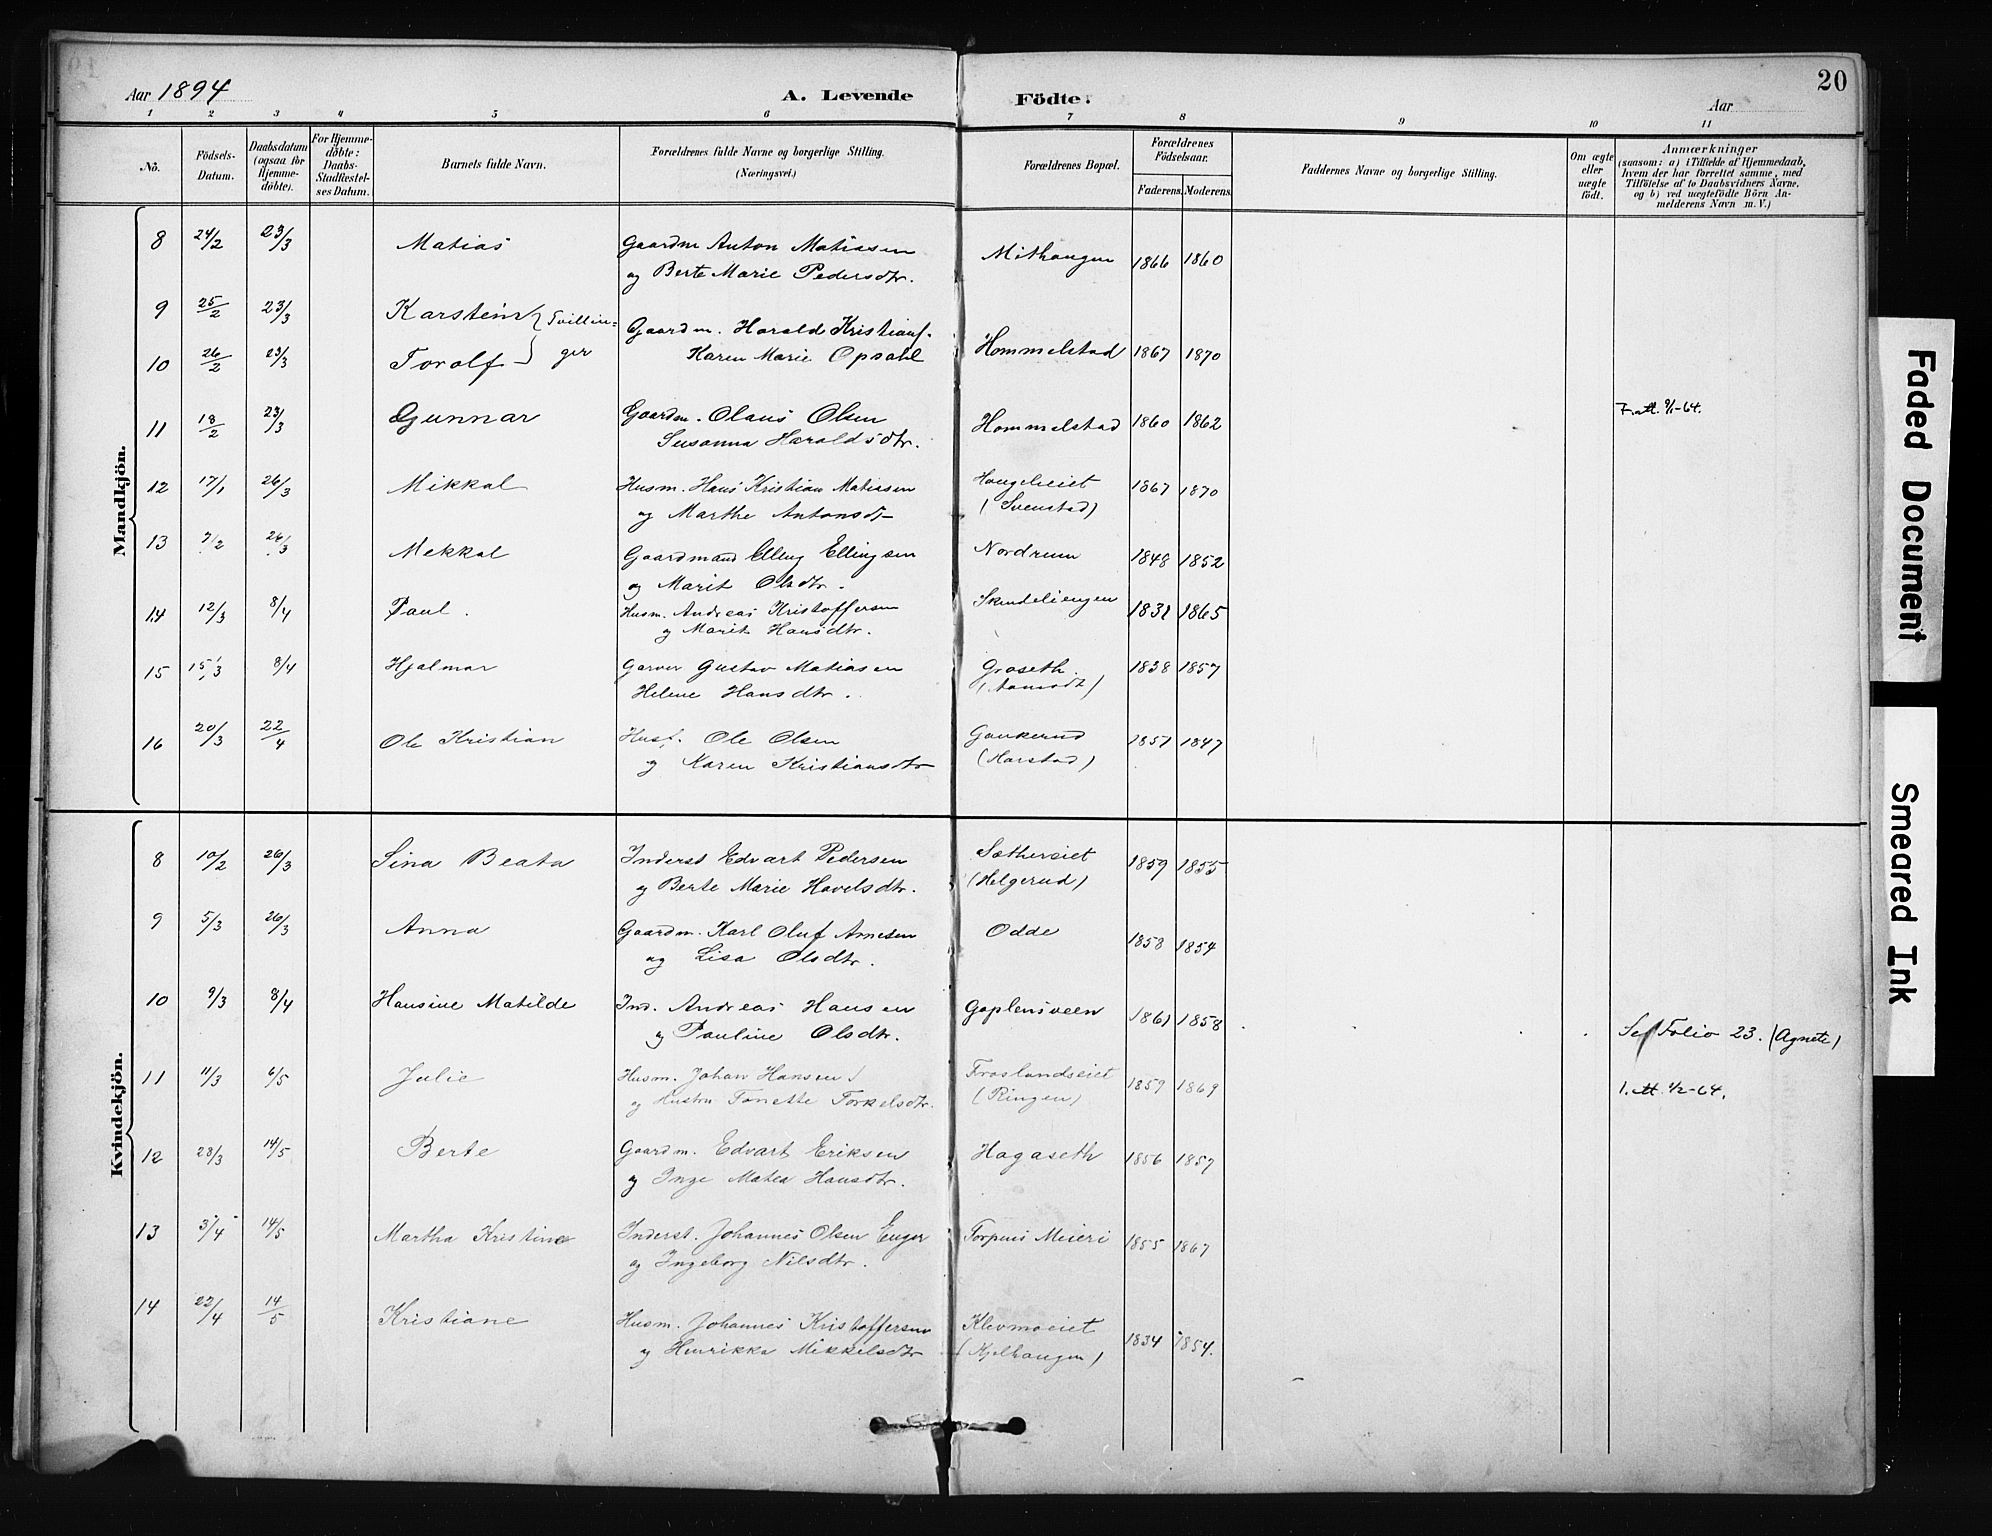 Aar 1894
A. Levende Födte.
Aar
20
1 2 3 4 5 6 7 8 9 10 11
No.
Födsels-Datum.
Daabsdatum (ogsaa for Hjemme-döbte).
For Hjemme-döbte: Daabs-Stadfestel-ses Datum.
Barnets fulde Navn.
Forældrenes fulde Navne og borgerlige Stilling.
(Næringsvei.)
Forældrenes Bopæl.
Forældrenes Födselsaar.
Faderens. Moderens.
Faddernes Navne og borgerlige Stilling.
Om ægte eller uægte födt.
Anmærkninger
(saasom: a) i Tilfælde af Hjemmedaab,
hvem der har forrettet samme, med
Tilföielse af to Daabsvidners Navne.
og b) ved uægtefödte Börn An-
melderens Navn m. V.)
Mandkjön.
8 24/2 23/3 Matias Gaardm Anton Matiasen Mithaugen 1866 1860
og Berte Marie Pedersdtr.
9 25/2 23/3 Karstein } Tvillin-
Gaardm. Harald Kristians.
10 26/2 23/3 Torolf } ger Karen Marie Opsahl Hommelstad 1867 1870
11 18/2 23/3 Gunnar Gaardm. Olaus Olsen Hommelstad 1860 1862
Susanna Haraldsdtr.
12 17/1 26/3 Mikkal Husm. Hans Kristian Matiasen Haugeheiet 1867 1870
og Marthe Antonsdt (Svenstad)
13 7/2 26/3 Mekkal Gaardmand Elling Ellingsen Nordrum 1848 1852
og Marit Olsdtr.
14 12/3 8/4 Paul. Husm. Andreas Kristoffersen Skindeliengen 1831 1865
og Marit Hansdtr.
15 15/3 8/4 Hjalmar Garver Gustav Matiasen Graseth 1838 1857
Helene Hansdtr.
16 20/3 22/4 Ole Kristian Husf. Ole Olsen Gaukerud 1851 1847
og Karen Kristiansdtr (Harstad)
Kvindekjön.
8 10/2 26/3 Sina Beata Inderst Edvart Pedersen Sæthereiet 1859 1855
og Berte Marie Havelsdtr. (Helgerud)
9 5/3 26/3 Anna Gaardm. Karl Oluf Arnesen Odde 1858 1854
og Lisa Olsdtr.
10 9/3 8/4 Hansine Matilde Ind. Andreas Hansen Goplensveen 1861 1858
og Pauline Olsdtr. Se Folio 23. (Agnete)
11 11/3 6/5 Julie Husm. Johan Hansen Fraslandseiet 1859 1869
og Hustru Tonette Torkelsdtr. (Ringen) 1. att. 1/2-64.
12 23/3 14/5 Berte Gaardm. Edvart Eriksen Hagaseth 1856 1857
og Inge Matea Hansdtr.
13 3/4 14/5 Martha Kristine Inderst. Johannes Olsen Enger Torpens Meieri 1855 1867
og Ingeborg Nilsdtr.
14 22/4 14/5 Kristiane Husm. Johannes Kristoffersen Klevmoeiet 1834 1854.
og Henrikka Mikkelsdtr (Kjelhaugen)
Faded Document
Smeared Ink